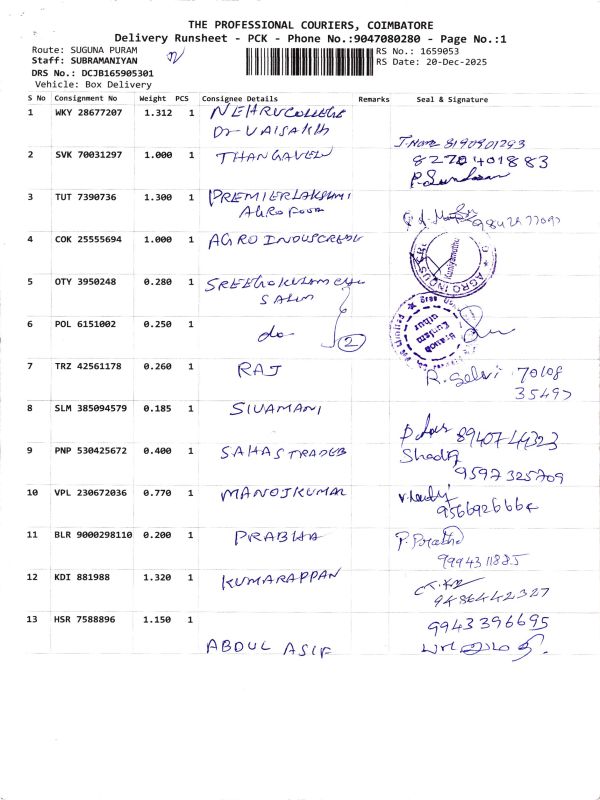 THE PROFESSIONAL COURIERS, COIMBATORE
Delivery Runsheet - PCK - Phone No.:9047080280 - Page No.:1
Route: SUGUNA PURAM
RS No.: 1659053
Staff: SUBRAMANIYAN
RS Date: 20-Dec-2025
DRS No.: DCJB165905301
Vehicle: Box Delivery
S No Consignment No Weight PCS Consignee Details Remarks Seal & Signature
1 WKY 28677207 1.312 1 NEHRU COLLEGE
Dr VAISAKH
2 SVK 70031297 1.000 1 THANGAVEL 8270401883
3 TUT 7390736 1.300 1 PREMIER LAKSHMI
AGRO FOOD
4 COK 25555694 1.000 1 AGRO INDUS
5 OTY 3950248 0.280 1
6 POL 6151002 0.250 1 do 2
7 TRZ 42561178 0.260 1 RAJ R. Selvi 70108
35497
8 SLM 385094579 0.185 1 SIVAMANI
89407 44323
9 PNP 530425672 0.400 1 SAHAS TRADERS
9597 325709
10 VPL 230672036 0.770 1 MANOJKUMAR
9566926664
11 BLR 9000298110 0.200 1 PRABHA
9994311885
12 KDI 881988 1.320 1 KUMARAPPAN
9486442327
13 HSR 7588896 1.150 1 9943396695
ABDUL ASIF